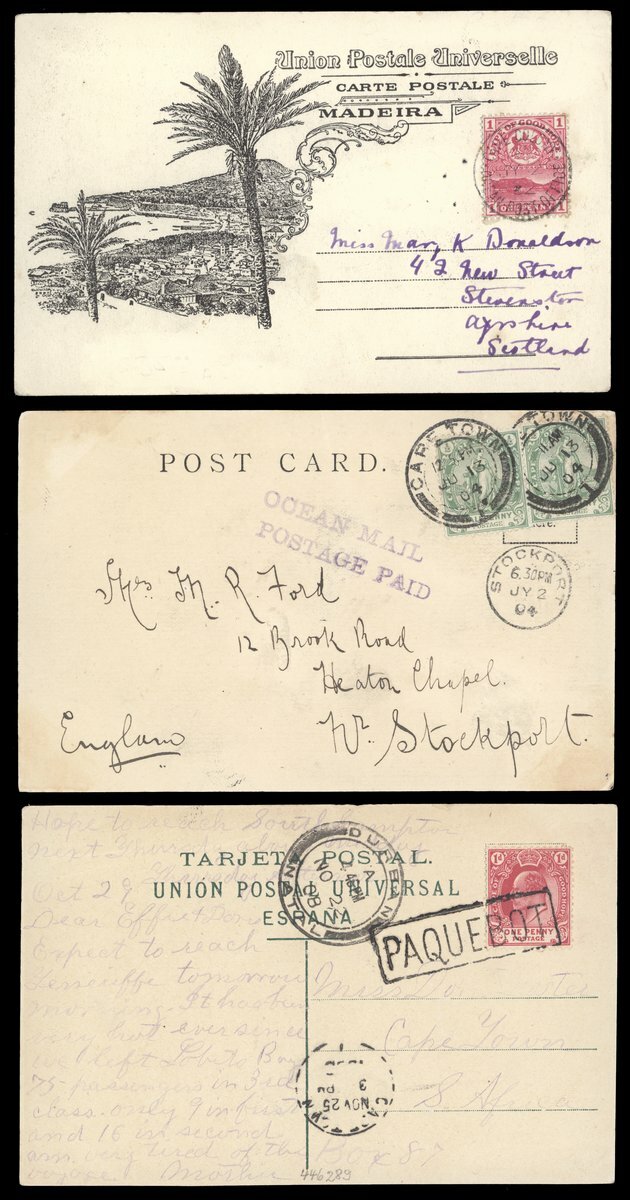 Union Postale Universelle
CARTE POSTALE
MADEIRA
1 CAPE OF GOOD HOPE 1
1 ONE PENNY 1
Miss Mary K Donaldson
42 New Street
Stevenston
Ayrshire
Scotland
POST CARD.
CAPE TOWN
JU 13
04
TOWN
JU 13
04
OCEAN MAIL
POSTAGE PAID
STOCKPORT
6.30PM
JY 2
04
Mrs. M. R. Ford
12 Brook Road
Heaton Chapel.
Nr. Stockport.
England
Hope to reach Southampton
next
TARJETA POSTAL.
UNION POSTAL UNIVERSAL
ESPAÑA
DURBAN
NATAL
A
4.45PM
NO 2
08
1d 1d
ONE PENNY
POSTAGE
PAQUEBOT
Oct 29
Dear Effie
Expect to reach
Teneriffe tomorrow
morning. It has been
very hot ever since
we left Lobito Bay
75 passengers in 3rd
class only 9 in first
and 16 in second
am very tired of the
voyage. Mother
Miss
Cape Town
S. Africa
Box 87
NOV 25
3
446289